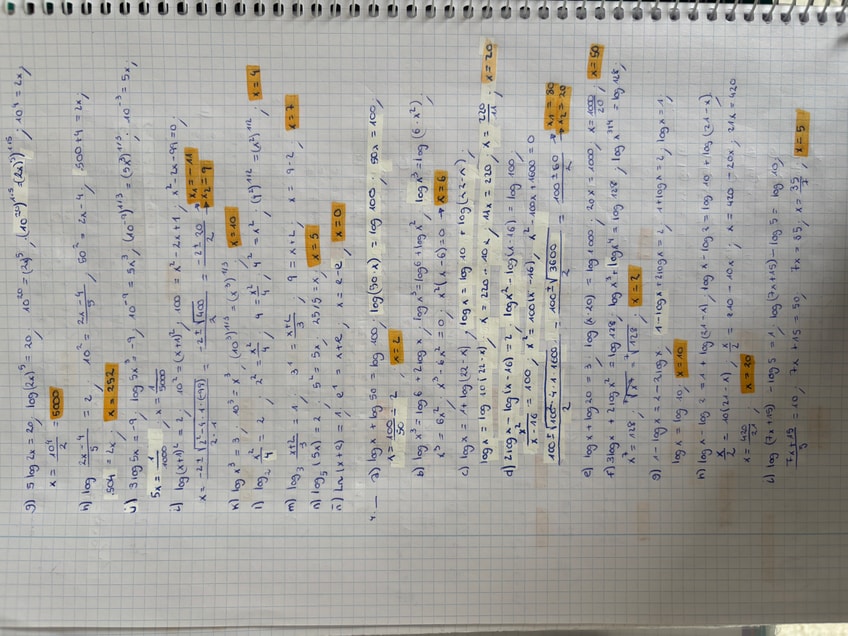 g) 5 log 2x = 20, log (2x)⁵ = 20, 10²⁰ = (2x)⁵, (10²⁰)^1/5 = (2x)⁵)^1/5, 10⁴ = 2x,
x = 10⁴/2 = 5000
h) log (2x-4)/5 = 2, 10² = (2x-4)/5, 50² = 2x-4, 500+4 = 2x,
504 = 2x, x = 252
5x = 1/1000, x = 1/5000
log(x+1)² = 2, 10² = (x+1)², 100 = x²-2x+1, x²-2x-99=0,
x₁ = -11
x₂ = 9
k) log x³ = 3, 10³ = x³, (10³)^1/3 = (x³)^1/3, x = 10
l) log₂ x²/4 = 2, 2² = x²/4, 4 = x²/4, 4² = x², (4²)^1/2 = (x²)^1/2, x = 4
m) log₃ (x+2)/3 = 1, 3¹ = (x+2)/3, 9 = x+2, x = 9-2, x = 7
n) log₅ (5x) = 2, 5² = 5x, 25/5 = x, x = 5
ñ) Ln (x+e) = 1, e¹ = x+e, x = e-e, x = 0
a) log x + log 50 = log 100, log (50·x) = log 100, 50x = 100,
x = 100/50 = 2 x = 2
b) log x³ = log 6 + 2 log x, log x³ = log 6 + log x², log x³ = log (6·x²),
x³ = 6x², x³-6x² = 0, x²(x-6) = 0 → x = 6
c) log x = 1 + log (22-x), log x = log 10 + log (22-x)
log x = log 10 (22-x), x = 220-10x, 11x = 220, x = 220/11, x = 20
d) 2 log x - log (x-16) = 2, log x² - log (x-16) = log 100,
x²/(x-16) = 100, x² = 100(x-16), x²-100x+1600 = 0
= (100±√3600)/2 = (100±60)/2 → x₁ = 80
x₂ = 20
e) log x + log 20 = 3, log (x·20) = log 1000, 20x = 1000, x = 1000/20, x = 50
f) 3 log x + 2 log x² = log 128, log x³ + log x⁴ = log 128, log x³⁺⁴ = log 128,
x⁷ = 128, ⁷√x⁷ = ⁷√128, x = 2
g) 1 - log x = 2 - 2 log x, 1 - log x + 2 log x = 2, 1 + log x = 2, log x = 1,
log x = log 10, x = 10
h) log x - log 2 = 1 + log (21-x), log x - log 2 = log 10 + log (21-x)
x/2 = 10(21-x), x/2 = 210-10x, x = 420-20x, 21x = 420
x = 420/21, x = 20
i) log (7x+15) - log 5 = 1, log (7x+15) - log 5 = log 10,
(7x+15)/5 = 10, 7x+15 = 50, 7x = 35, x = 35/7, x = 5